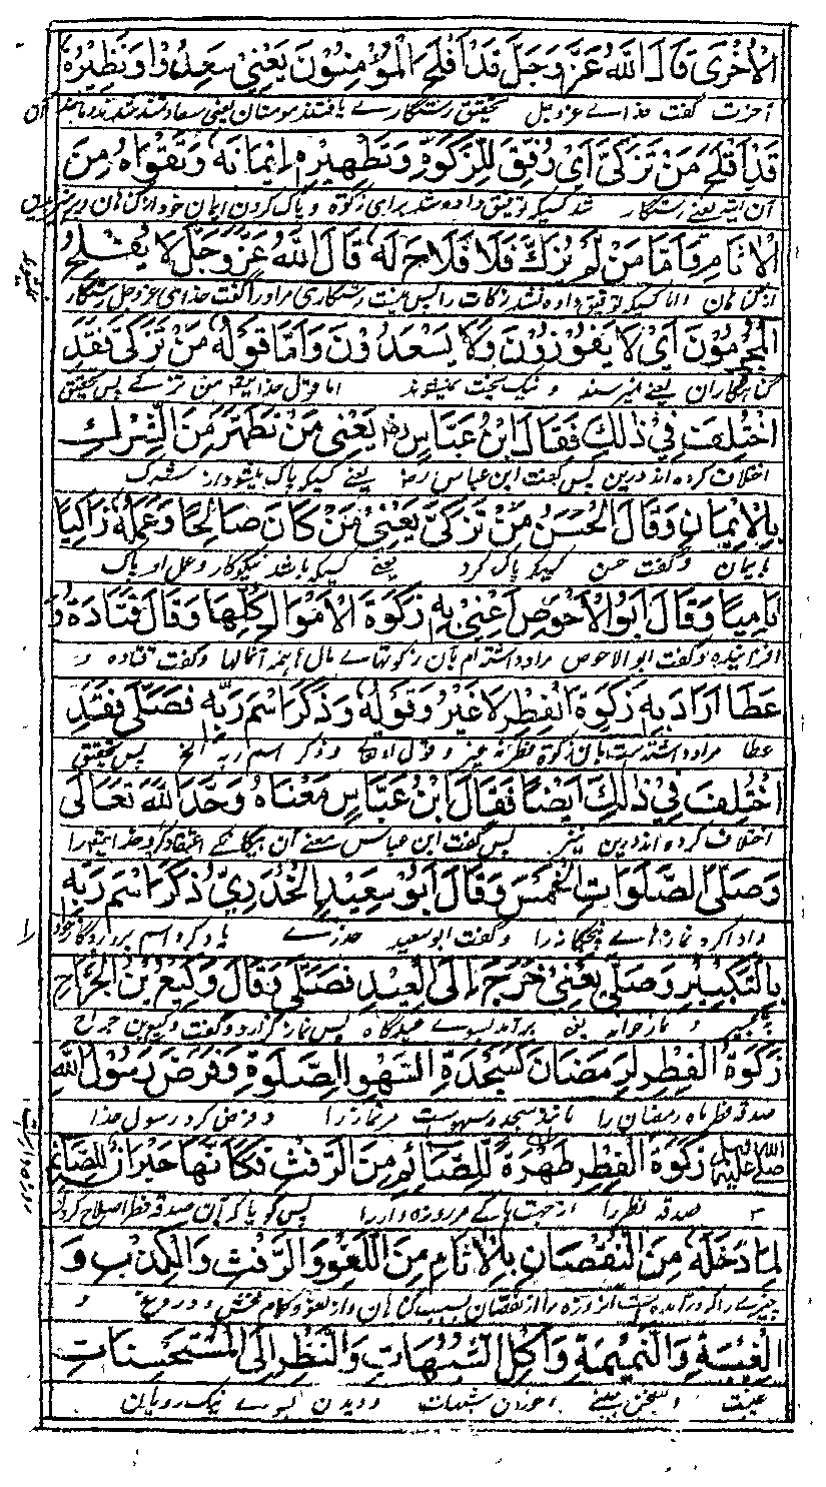 الْاُخْرٰى قَالَ اللّٰهُ عَزَّ وَجَلَّ قَدْ اَفْلَحَ الْمُؤْمِنُوْنَ يَعْنِيْ سَعِدُوْا وَنَظِيْرُهٗ
آخرت گفت خداے عزوجل تحقیق رستگارے یافتند مومنان یعنی سعادتمند شدند و مانند آن
قَدْ اَفْلَحَ مَنْ تَزَكّٰى اَيْ وُفِّقَ لِلزَّكٰوةِ وَتَطْهِيْرِهٖ اِيْمَانَهٗ وَتَقْوَاهُ مِنَ
شد کسیکہ توفیق دادہ شد برای زکوة و پاک کردن ایمان خود از گناهان
الْاٰثَامِ وَاَمَّا مَنْ لَمْ يُزَكَّ فَلَا فَلَاحَ لَهٗ قَالَ اللّٰهُ عَزَّ وَجَلَّ لَا يُفْلِحُ
از گناهان اما کسیکہ توفیق دادہ نشد زکات را پس نیست رستگاری مر او را گفت خدای عزوجل رستگار
الْمُجْرِمُوْنَ اَيْ لَا يَفُوْزُوْنَ وَلَا يَسْعَدُوْنَ وَاَمَّا قَوْلُهٗ مَنْ تَزَكّٰى فَقَدِ
گناهگاران یعنے نمیرسند و نیک بخت نمیشوند اما قول خدایتعالے من تزکے پس تحقیق
اخْتُلِفَ فِيْ ذٰلِكَ فَقَالَ ابْنُ عَبَّاسٍ رض يَعْنِيْ مَنْ تَطَهَّرَ مِنَ الشِّرْكِ
اختلاف کردہ اند درین پس گفت ابن عباس رض یعنے کسیکہ پاک میشود از شرک
بِالْاِيْمَانِ وَقَالَ الْحَسَنُ مَنْ تَزَكّٰى يَعْنِيْ مَنْ كَانَ صَالِحًا وَعَمَلُهٗ زَاكِيًا
بایمان وگفت حسن کسیکہ پاک کرد یعنے کسیکہ باشد نیکوکار و عمل او پاک
نَامِيًا وَقَالَ اَبُو الْاَحْوَصِ اَعْنِيْ بِهٖ زَكٰوةَ الْاَمْوَالِ كُلِّهَا وَقَالَ قَتَادَةُ وَ
افزایندہ وگفت ابو الاحوص مراد داشته ام بآن زکوتہاے مال را ہمہ آنہا وگفت قتادہ و
عَطَا اَرَادَ بِهٖ زَكٰوةَ الْفِطْرِ لَا غَيْرُ وَقَوْلُهٗ وَذَكَرَ اسْمَ رَبِّهٖ فَصَلّٰى فَقَدِ
عطا مراد داشتہ است بآن زکوة فطر نہ غیر و قول او تعالے و ذکر اسم ربہ الخ پس تحقیق
اخْتُلِفَ فِيْ ذٰلِكَ اَيْضًا فَقَالَ ابْنُ عَبَّاسٍ مَعْنَاهُ وَحَّدَ اللّٰهَ تَعَالٰى
اختلاف کردہ اند درین نیز پس گفت ابن عباس معنے آن بیگانگے اعتقاد کرد خدایتعالے را
وَصَلَّى الصَّلَوَاتِ الْخَمْسَ وَقَالَ اَبُوْ سَعِيْدٍ الْخُدْرِيِّ ذَكَرَ اسْمَ رَبِّهٖ
وادا کرد نمازہاے پنجگانہ را وگفت ابو سعید خدرے یاد کرد اسم پروردگار خود را
بِالتَّكْبِيْرِ وَصَلّٰى يَعْنِيْ خَرَجَ اِلَى الْعِيْدِ فَصَلّٰى وَقَالَ وَكِيْعُ بْنُ الْجَرَّاحِ
بتکبیر و نماز خواند یعنی برآمد بسوے عیدگاہ پس نماز گزارد وگفت وکیع بن جراح
زَكٰوةُ الْفِطْرِ لِرَمَضَانَ كَسَجْدَةِ السَّهْوِ الصَّلٰوةِ وَفَرَضَ رَسُوْلُ اللّٰهِ
صدقہ فطر ماہ رمضان را مانند سجدہ سہو است مر نماز را و فرض کرد رسول خدا
صَلَّى اللّٰهُ عَلَيْهِ زَكٰوةَ الْفِطْرِ طُهْرَةً لِّلصَّائِمِ مِنَ الرَّفَثِ فَكَاَنَّهَا جُبْرَانٌ لِلصَّائِمِ
صدقہ فطر را از جہت پاکے مر روزہ دار را پس گویا کہ آن صدقہ فطر اصلاح
لِمَا دَخَلَهٗ مِنَ النُّقْصَانِ بِالْاٰثَامِ مِنَ اللَّغْوِ وَالرَّفَثِ وَالْكَذِبِ وَ
چیزے را کہ درآمدہ است آن روزہ را از نقصان بسبب گناہان و از لغو و کلام فحش و دروغ و
الْغِيْبَةِ وَالنَّمِيْمَةِ وَاَكْلِ الشُّبُهَاتِ وَالنَّظَرِ اِلَى الْمُسْتَحْسَنَاتِ
غیبت و سخن چینے و خوردن شبہات و دیدن بسوے نیک رویان